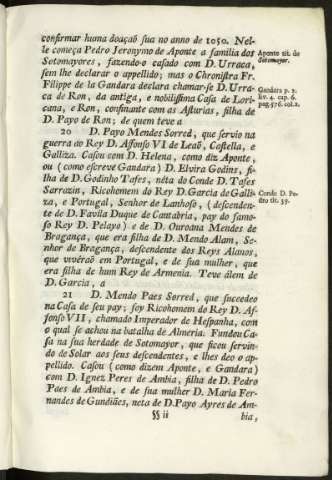 confirmar huma doaçaõ sua no anno de 1050. Nel-
le começa Pedro Jeronymo de Aponte a familia dos
Sotomayores, fazendo-o casado com D. Urraca,
sem lhe declarar o appellido; mas o Chronista Fr.
Filippe de la Gandara declara chamar-se D. Urra-
ca de Ron, da antiga, e nobilissima Casa de Lori-
cana, e Ron, confinante com as Asturias, filha de
D. Payo de Ron; de quem teve a
20 D. Payo Mendes Sorred, que servio na
guerra ao Rey D. Affonso VI de Leaõ, Castella, e
Galliza. Casou com D. Helena, como diz Aponte,
ou (como escreve Gandara) D. Elvira Godins, fi-
lha de D. Godinho Tafes, neta do Conde D. Tafes
Sarrazin, Ricohomem do Rey D. Garcia de Galli-
za, e Portugal, Senhor de Lanhoso, (descenden-
te de D. Favila Duque de Cantabria, pay do famo-
so Rey D. Pelayo) e de D. Ouroana Mendes de
Bragança, que era filha de D. Mendo Alam, Se-
nhor de Bragança, descendente dos Reys Alanos,
que vivéraõ em Portugal, e de sua mulher, que
era filha de hum Rey de Armenia. Teve álem de
D. Garcia, a
21 D. Mendo Paes Sorred, que succedeo
na Casa de seu pay; foy Ricohomem do Rey D. Af-
fonso VII, chamado Imperador de Hespanha, com
o qual se achou na batalha de Almeria. Fundou Ca-
sa na sua herdade de Sotomayor, que ficou servin-
do de Solar aos seus descendentes, e lhes deo o ap-
pellido. Casou (como dizem Aponte, e Gandara)
com D. Ignez Peres de Ambia, filha de D. Pedro
Paes de Ambia, e de sua mulher D. Maria Fer-
nandes de Gundiães, neta de D. Payo Ayres de Am-
§§ ii bia,
Aponte tit. de
Sotomayor.
Gandara p. 2.
liv. 4. cap. 6.
pag. 576. col. 2.
Conde D. Pe-
dro tit. 39.